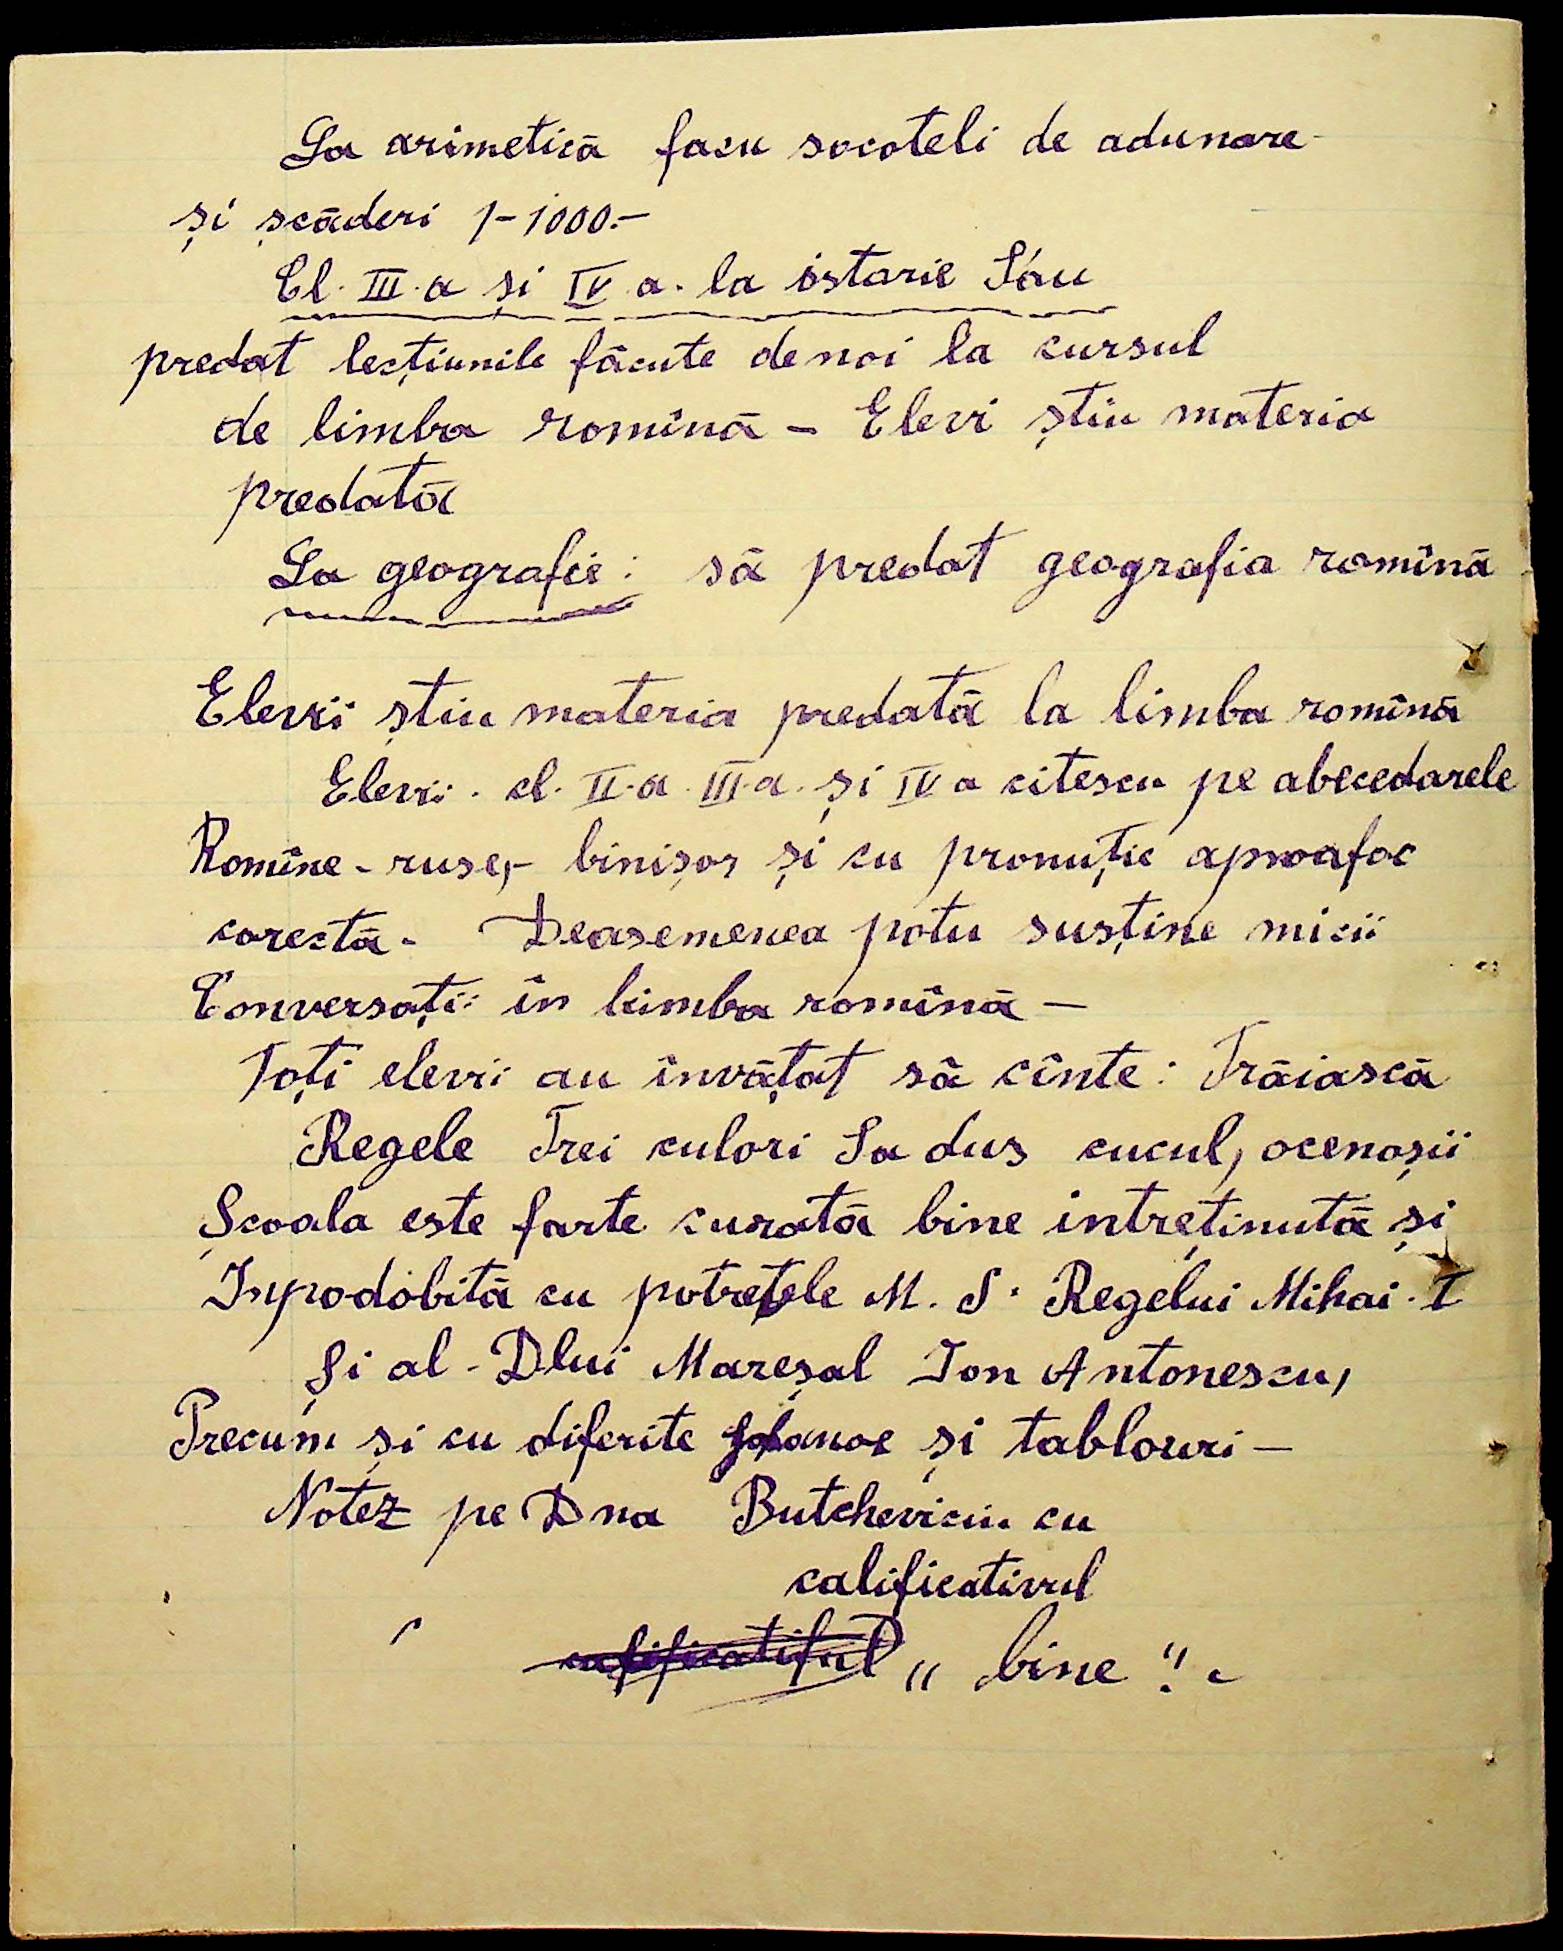 La arimetică facu socoteli de adunare
și șcăderi 1-1000.-
Cl. III.a și IV a. la istarie S'au
predat lecțiunile făcute de noi la cursul
de limba romînă - Elevi știu materia
predată
La geografie: să predat geografia romînă
Elevii știu materia predată la limba romînă
Elevii. cl. II.a. III.a. și IV a citescu pe abecedarele
Romîne - ruse, - binișor și cu pronuție aproafoc
corectă. Deasemenea potu susține micii
Conversații în limba romînă -
Toți elevii au învățat să cînte: Trăiască
Regele Trei culori Sa dus cucul, ocenașii
Școala este farte curată bine intreținută și
Inpodobită cu potretele M. S. Regelui Mihai. I
Și al - Dlui Mareșal Ion Antonescu,
Precum și cu diferite și tablouri -
Notez pe Dna Butcheviciu cu
calificativul
calificatiful „ bine ".